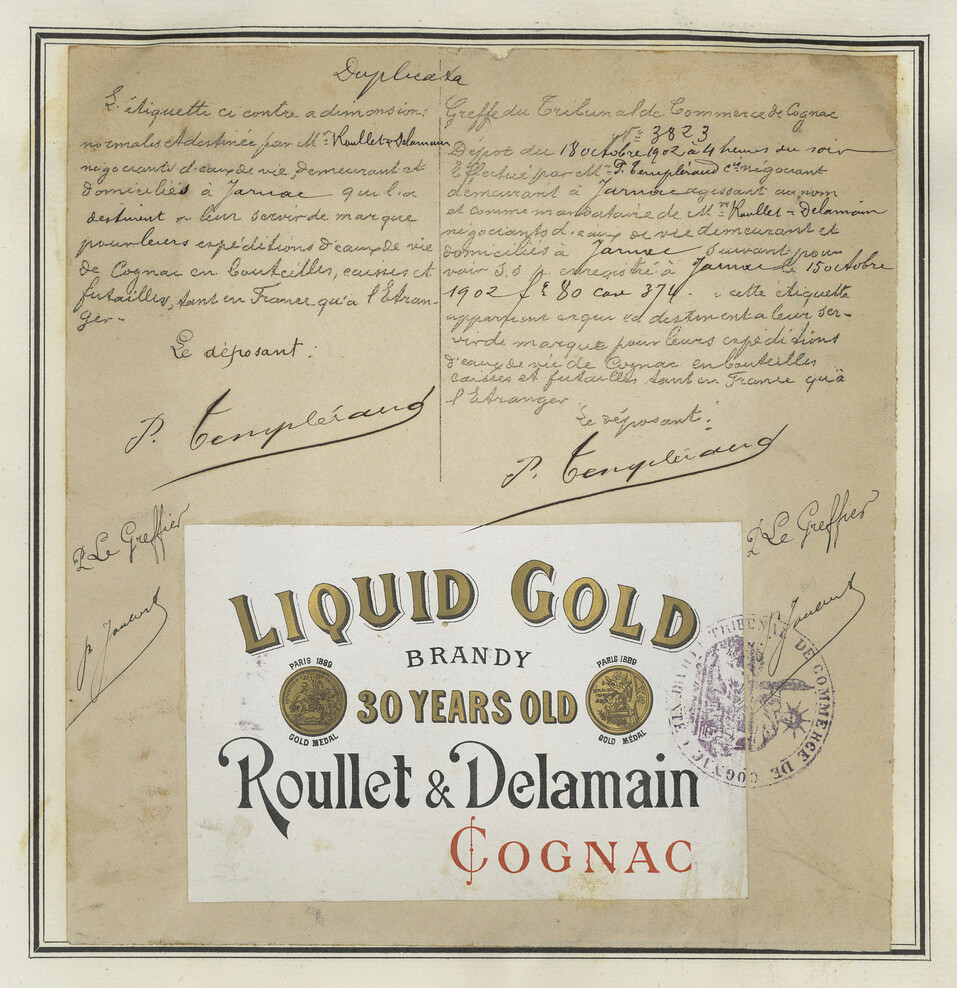 Duplicata
L'étiquette ci contre a dimensions
normales est destinée par Mrs Roullet & Delamain
négociants d'eaux de vie demeurant et
domiciliés à Jarnac qui la
destinent a leur servir de marque
pour leurs expéditions d'eaux de vie
de Cognac en bouteilles, caisses et
futailles, tant en France qu'à l'Etran-
ger.-
Le déposant :
P. Templéraud
P. Le Greffier
Greffe du Tribunal de Commerce de Cognac
No 3823
Dépot du 18 octobre 1902 à 4 heures du soir
Effectué par Mr P. Templéraud négociant
demeurant à Jarnac agissant au nom
et comme mandataire de Mrs Roullet & Delamain
négociants d'eaux de vie demeurant et
domiciliés à Jarnac suivant pou-
voir S.S.p. enregistré à Jarnac le 15 octobre
1902 fo 80 case 374. cette étiquette
appartient et qui la destinent a leur ser-
vir de marque pour leurs expéditions
d'eaux de vie de Cognac en bouteilles
caisses et futailles tant en France qu'à
l'Etranger
Le déposant :
P. Templéraud
P. Le Greffier
LIQUID GOLD
BRANDY
PARIS 1889
GOLD MEDAL
30 YEARS OLD
PARIS 1889
GOLD MÉDAL
Roullet & Delamain
COGNAC
TRIBUNAL DE COMMERCE DE COGNAC